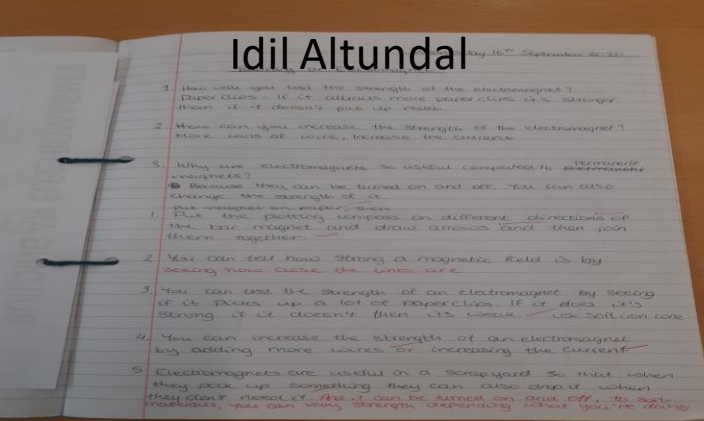 Idil Altundal
day 16th September 2020
1. How will you test the strength of the electromagnet?
Paper clips - If it attracts more paper clips it's stronger
than if it doesn't pick up much.
2. How can you increase the strength of the electromagnet?
More coils of wire, increase the current
3. Why are electromagnets so useful compared to permanent
magnets?
Because they can be turned on and off. You can also
change the strength of it.
Put magnet on paper, then
1. Put the plotting compass on different directions of
the bar magnet and draw arrows and then join
them together.
2. You can tell how strong a magnetic field is by
seeing how close the lines are
3. You can test the strength of an electromagnet by seeing
if it picks up a lot of paperclips. If it does it's
strong if it doesn't then its weak. use soft iron core
4. You can increase the strength of an electromagnet
by adding more wires or increasing the current
5. Electromagnets are useful in a scrapyard so that when
they pick up something they can also drop it when
they don't need it. And it can be turned on and off, to sort
materials, you can vary strength depending what you're doing